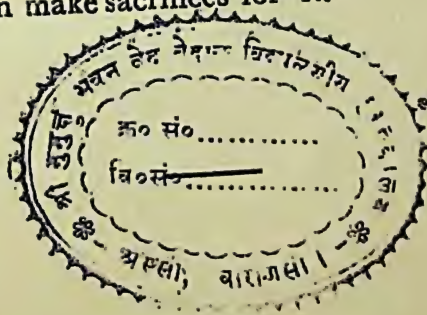 make sacrifices for
श्री मुमुक्षु भवन वेद वेदाङ्ग
क्र० सं०..............
वि०सं०................
अस्सी, वाराणसी।